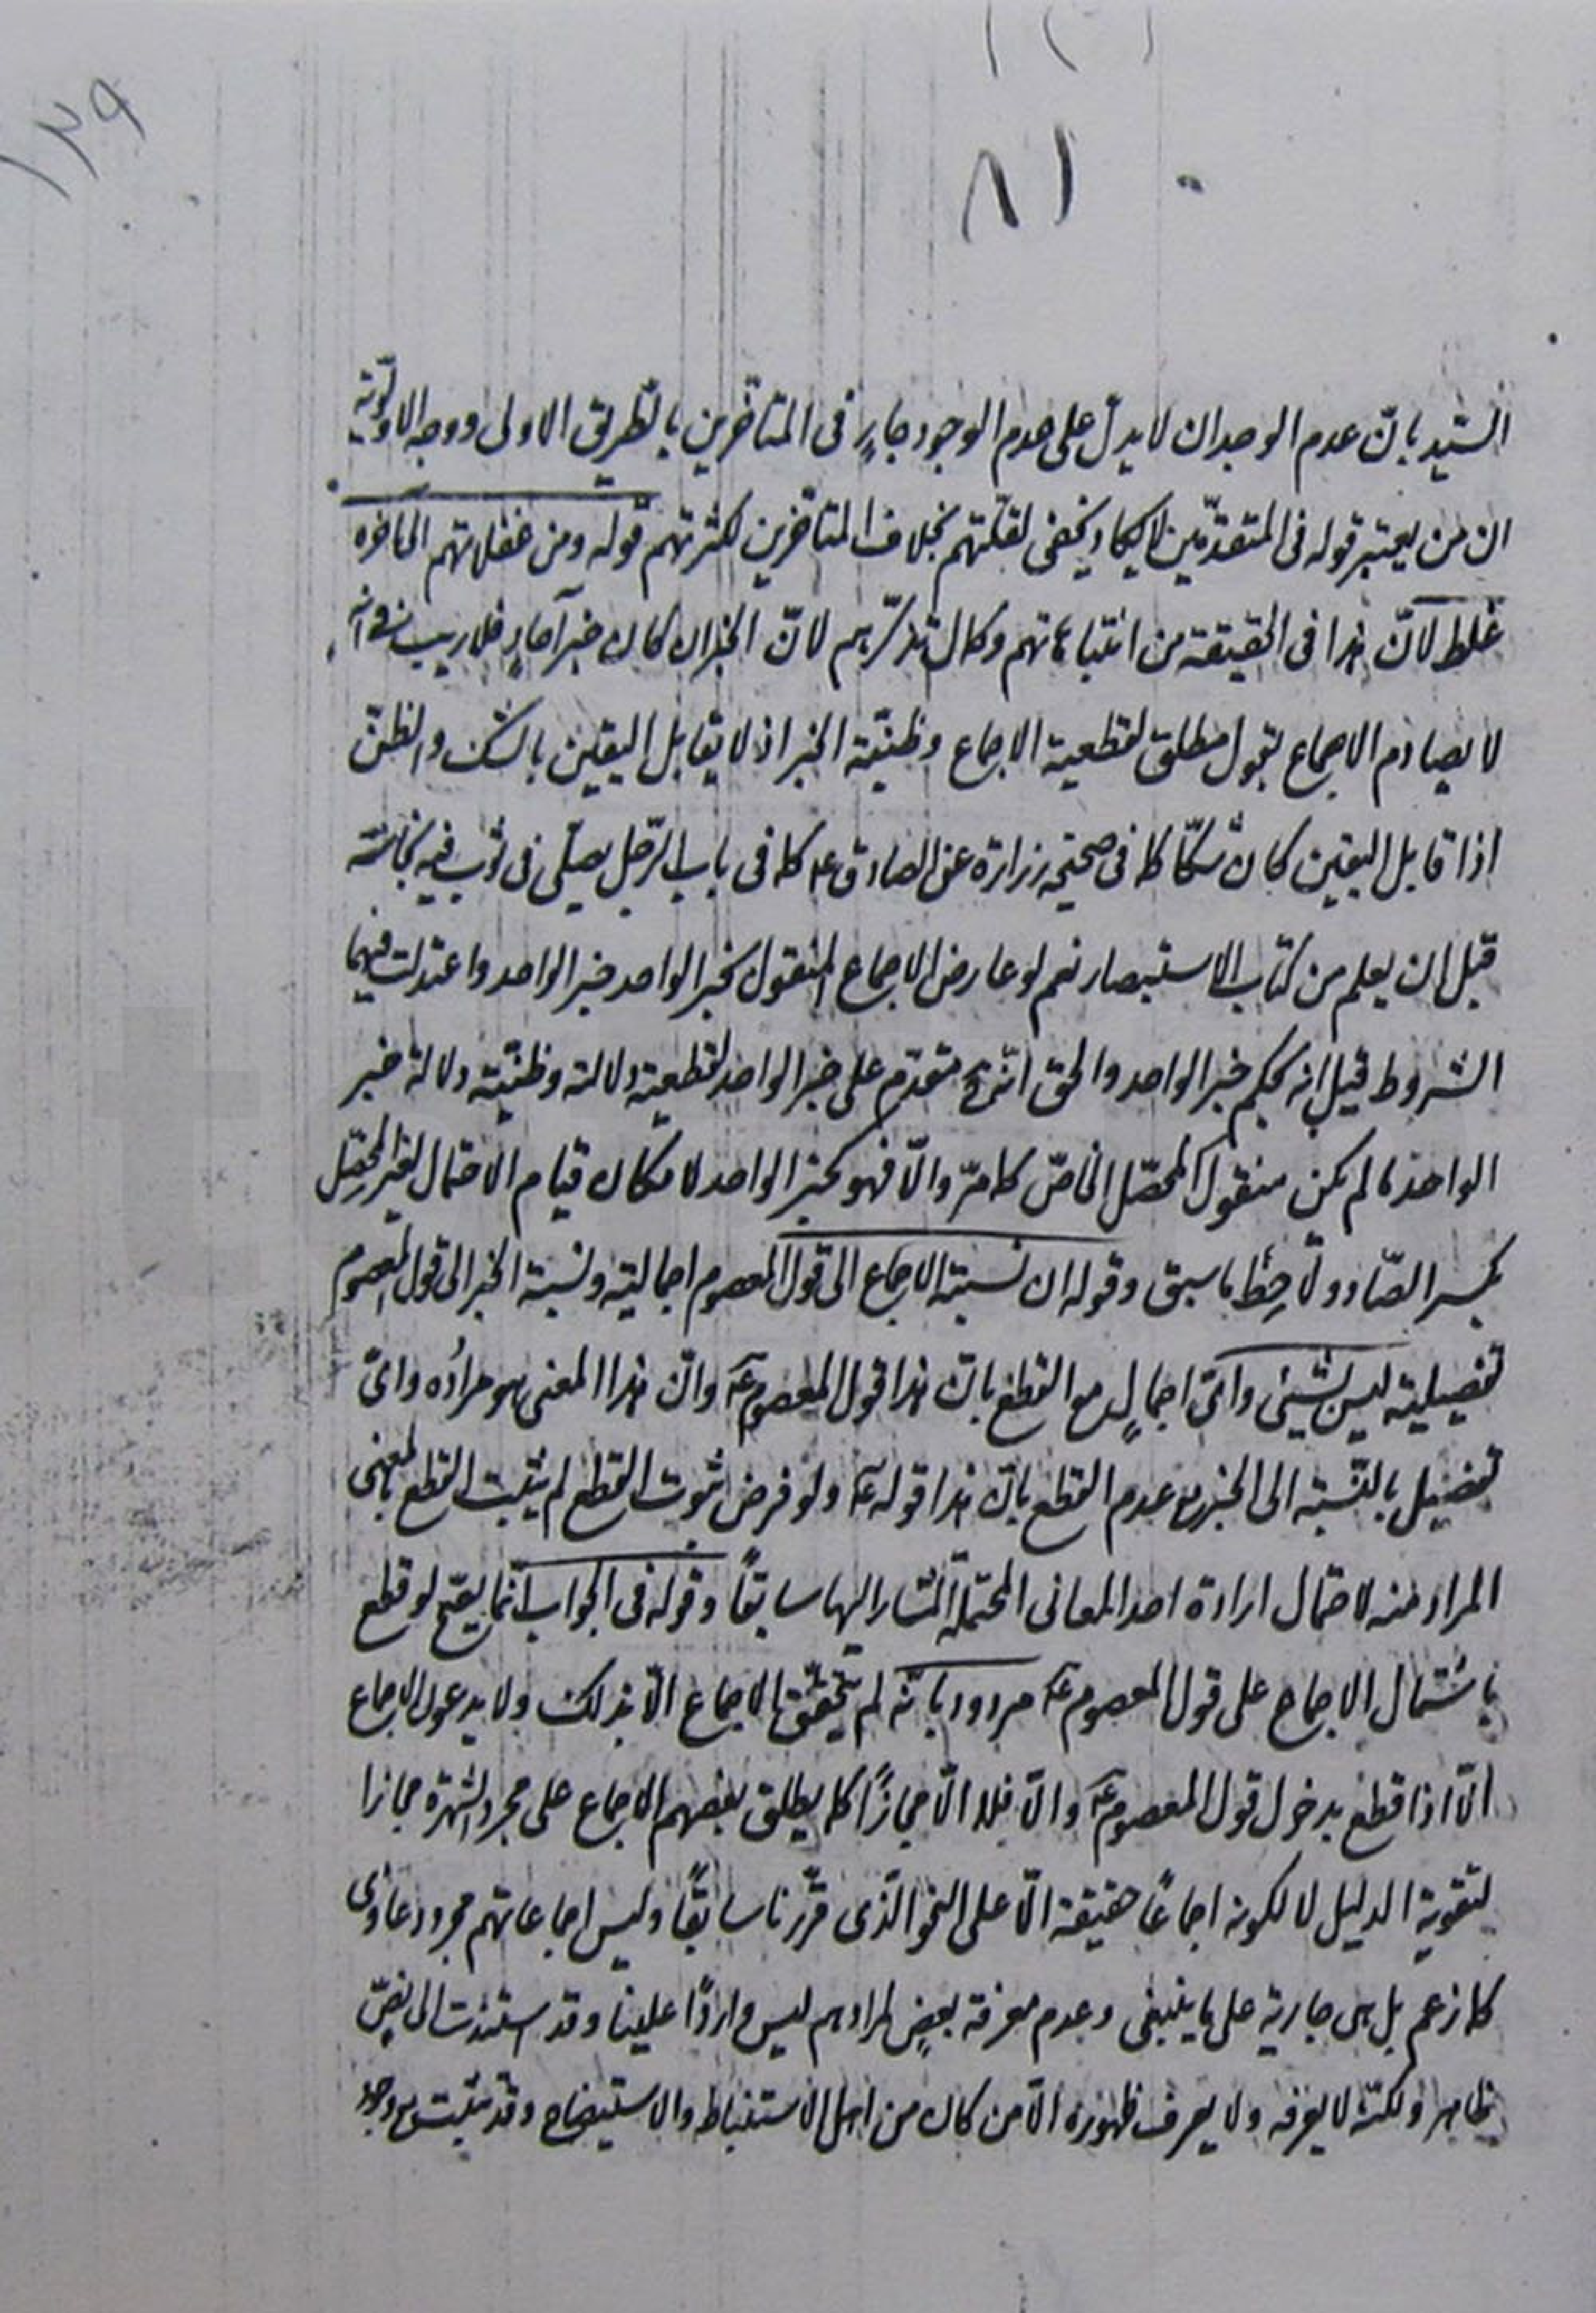 ١٣٩
٨١
السّيد بانّ عدم الوجدان لا يدلّ على عدم الوجود جارٍ فى المتاخّرين بالطّريق الاولى ووجه الاولويّة
ان من يعتبر قوله فى المتقدّمين لا يكاد يخفى لقلّتهم بخلاف المتاخّرين لكثرتهم قوله ومن غفلاتهم الى اخره
غلط لانّ هذا فى الحقيقة من انتباهاتهم وكمال تذكّرهم لانّ الخبر ان كان خبر آحادٍ فلا ريب فى انه
لا يصادم الاجماع بقول مطلق لقطعية الاجماع وظنيّة الخبر اذ لا يقابل اليقين بالشك والظنّ
اذا قابل اليقين كان شكّا كما فى صحيحة زرارة عن الصادق ع كما فى باب الرّجل يصلّى فى ثوب فيه نجاسة
قبل ان يعلم من كتاب الاستبصار نعم لو عارض الاجماع المنقول بخبر الواحد خبر الواحد واعتدلت فيهما
الشروط قيل انه بحكم خبر الواحد والحق انّه ح متقدّم على خبر الواحد لقطعية دلالته وظنيّة دلالة خبر
الواحد ما لم يكن منقول المحصّل الخاصّ كما مرّ والّا فهو كخبر الواحد لامكان قيام الاحتمال لغير المحصِّل
بكسر الصّاد ولاحِظ ما سبق وقوله ان نسبة الاجماع الى قول المعصوم اجمالية ونسبة الخبر الى قول المعصوم
تفصيلية ليس بشيئ واىّ اجمالٍ مع القطع بانّ هذا قول المعصوم ع وانّ هذا المعنى هو مرادُه واىّ
تفصيل بالنّسبة الى الخبر مع عدم القطع بانّ هذا قوله ع ولو فرض ثبوت القطع لم يثبت القطع بالمعنى
المراد منه لاحتمال ارادة احد المعانى المحتملة المشار اليها سابقًا وقوله فى الجواب انّما يصحّ لو قطع
باشتمال الاجماع على قول المعصوم ع مردود بانّه لم يتحقّق الاجماع الّا بذلك ولا يدعون الاجماع
الّا اذا قطع بدخول قول المعصوم ع والّا فلا الّا مجازًا كما يطلق بعضهم الاجماع على مجرد الشهرة مجازا
لتقوية الدليل لا لكونه اجماعًا حقيقة الّا على النحو الّذى قرّرنا سابقًا وليس اجماعاتهم مجرد دعاوى
كما زعم بل هى جارية على ما ينبغى وعدم معرفة بعضٍ لمرادهم ليس واردًا علينا وقد استندت الى نصّ
ظاهر ولكنّه لا يعرفه ولا يعرف ظهوره الّا من كان من اهل الاستنباط والاستيضاح وقد يثبت مع وجود